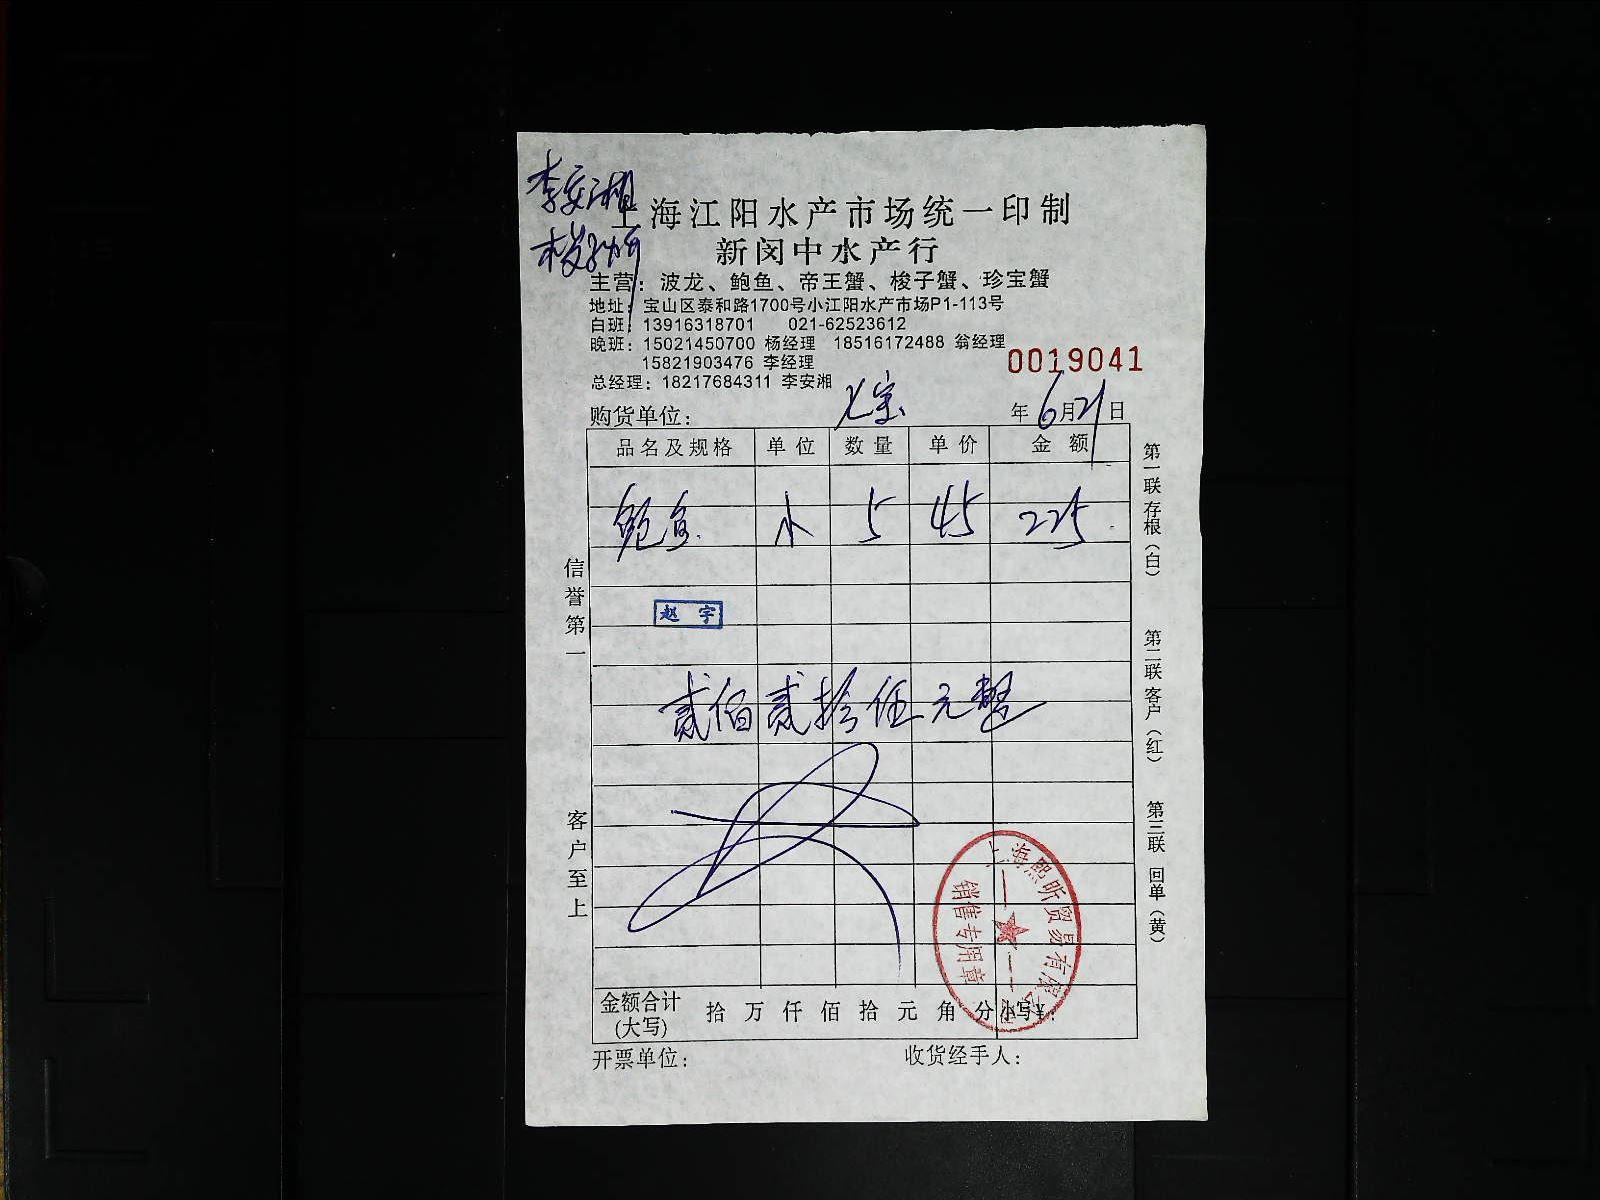 李安湘
上海江阳水产市场统一印制
新闵中水产行
主营：波龙、鲍鱼、帝王蟹、梭子蟹、珍宝蟹
地址：宝山区泰和路1700号小江阳水产市场P1-113号
白班：13916318701 021-62523612
晚班：15021450700 杨经理 18516172488 翁经理
15821903476 李经理
0019041
总经理：18217684311 李安湘
购货单位： 七宝 年6月21日
品名及规格 单位 数量 单价 金额
鲍鱼 小 5 45 225
赵宇
贰佰贰拾伍元整
信誉第一
客户至上
第一联 存根（白）
第二联 客户（红）
第三联 回单（黄）
上海熙昕贸易有限公司
销售专用章
金额合计（大写） 拾 万 仟 佰 拾 元 角 分 小写¥：
开票单位： 收货经手人：